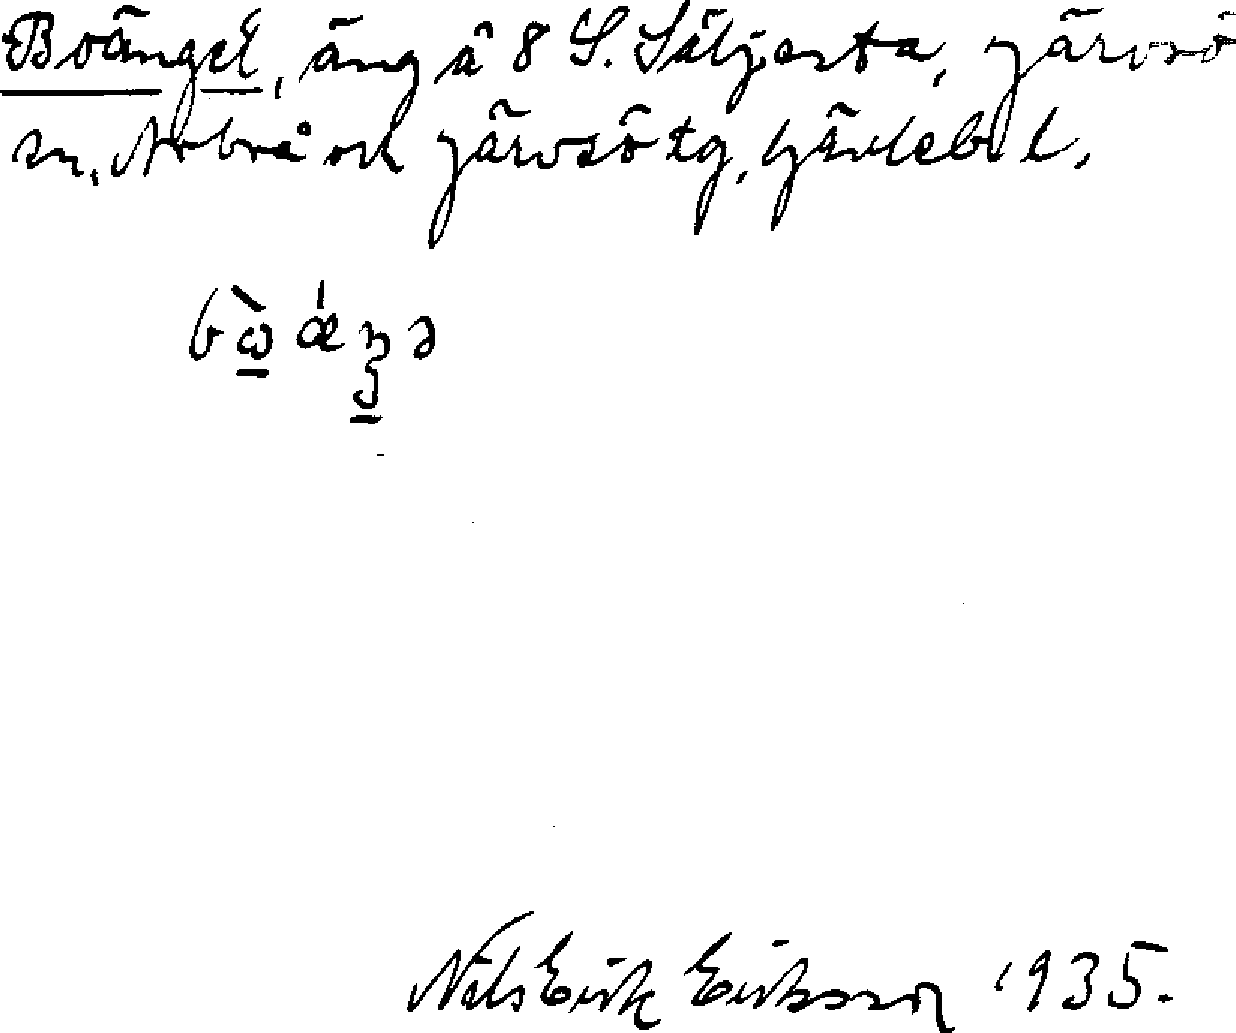 Boänget, äng å 8 S. Säljesta, Järvsö
sn, Arbrå och Järvsö tg, Gävleb. l.
Nils Erik Eriksson 1935.